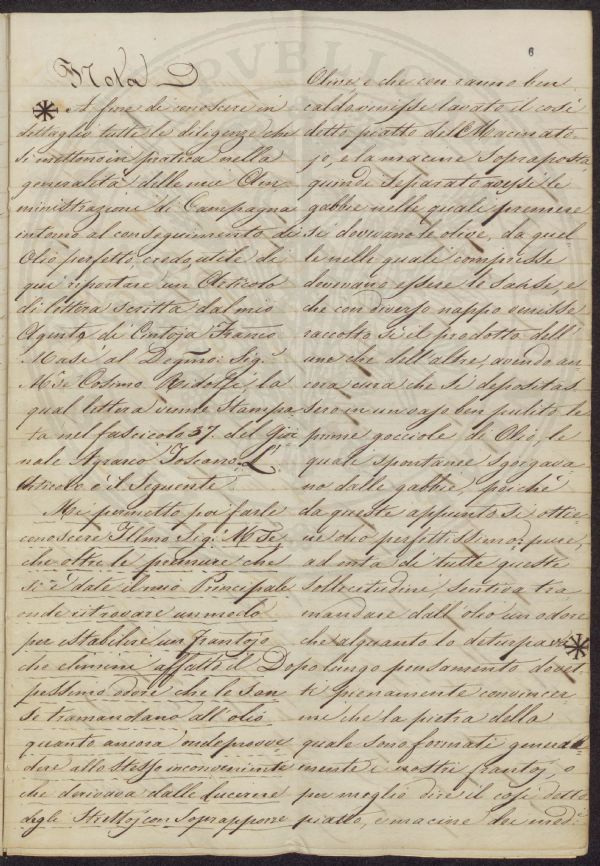 6
Nota D
A fine di conoscere in
dettaglio tutte le diligenze che
si mettono in pratica nella
generalità delle mie Am=
ministrazione di Campagna
intorno al conseguimento di
Olio perfetto credo utile di
qui riportare un Articolo
di lettera scritta dal mio
Agente di Cintoja Franco
Mase al Degmo: Sig:
Mse Cosimo Ridolfi, la
qual lettera venne stampa
ta nel fascicolo 37. del Gior
nale Agrario Toscano. L'
Articolo è il seguente
Mi permetto poi farle
conoscere Illmo Sig: Mse
che oltre le premure che
si è date il mio Principale
onde ritrovare un modo
per istabilire un frantojo
che elimini affatto il
pessimo odore che le San
se tramandano all'olio
quanto ancora onde provve
dere allo stesso inconveniente
che derivava dalle lucerne
degli Strettoj con soprapporre
Olive, e che con ranno ben
caldo venisse lavato il così
detto piatto dell Macinato=
jo, e la macine soprapposta
quindi separato avessi le
gabbie nelle quali premere
si dovevano le olive, da quel
le nelle quali compresse
dovevano essere le sanse, e
che con diverso nappo venisse
raccolto si il prodotto dell'
une che dell'altre, avendo an
cora cura che si depositas
sero in un vaso ben pulito le
prime gocciole di Olio, le
quali spontanee sgorgava
no dalle gabbie, poichè
da queste appunto si ottie
ne olio perfettissimo; pure,
ad onta di tutte queste
sollecitudini, sentiva tra
mandare dall'olio un odore
che alquanto lo deturpava
Dopo lungo pensamento dovet
ti pienamente convincer
mi che la pietra della
quale sono formati general
mente i nostri frantoj, o
per meglio dire il così detto
piatto, e macine dei med:i